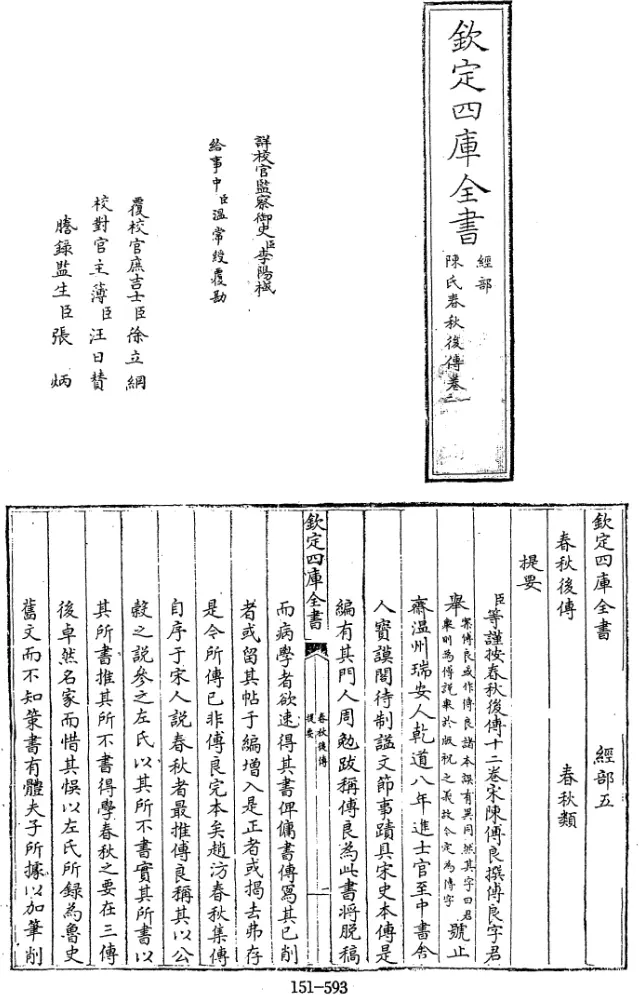 欽定四庫全書
經部
陳氏春秋後傳卷一
二
詳校官監察御史臣李陽棫
給事中臣温常綬覆勘
覆校官庶吉士臣徐立綱
校對官主簿臣汪日贊
謄錄監生臣張炳
欽定四庫全書 經部五
春秋後傳 春秋類
提要
臣等謹按春秋後傳十二卷宋陳傅良撰傅良字君
舉案傅良或作傅良諸本誤有異同然其字曰君
舉則為傅説舉於版祝之義故今定為傅字號止
齋温州瑞安人乾道八年進士官至中書舍
人寶謨閣待制諡文節事蹟具宋史本傳是
編有其門人周勉跋稱傅良為此書將脱稿
欽定四庫全書
春秋後傳
提要
一
而病學者欲速得其書俾傭書傳寫其已削
者或留其帖于編增入是正者或揭去弗存
是今所傳已非傅良完本矣趙汸春秋集傳
自序于宋人説春秋者最推傅良稱其以公
穀之説參之左氏以其所不書實其所書以
其所書推其所不書得學春秋之要在三傳
後卓然名家而惜其悮以左氏所録為魯史
舊文而不知策書有體夫子所據以加筆削
151-593